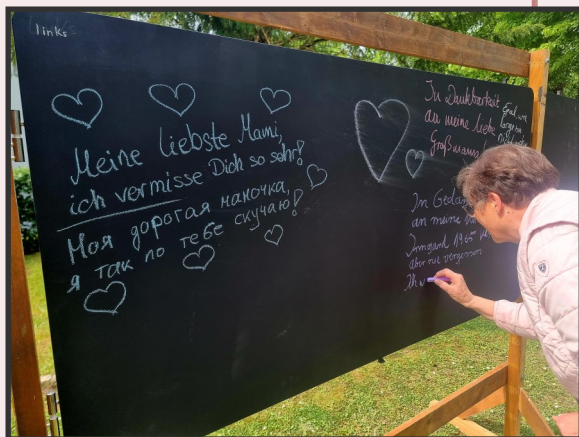 links
Meine liebste Mami,
ich vermisse Dich so sehr!
Моя дорогая мамочка,
я так по тебе скучаю!
In Dankbarkeit
an meine liebe
Großmama
In
an meine
Irmgard 1965
aber nie vergessen